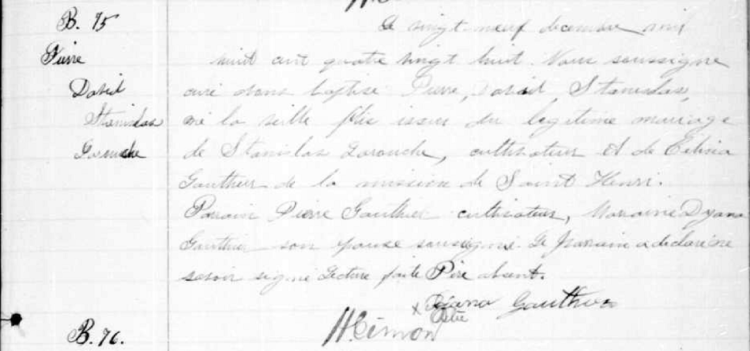 B. 75
Pierre
David
Stanislas
Larouche
Le vingt neuf decembre mil
huit cent quatre vingt huit Nous soussigne
curé avons baptise Pierre, David Stanislas,
né la veille fils issu du legitime mariage
de Stanislas Larouche, cultivateur et de Edina
Gauthier de la mission de Saint Henri.
Parain Pierre Gauthier cultivateur, Marraine Dyana
Gauthier son epouse soussigné Le Parrain a declaré ne
savoir signé Lecture faite Père absent.
Diana Gauthier
H. Cimon Ptre
B. 76.